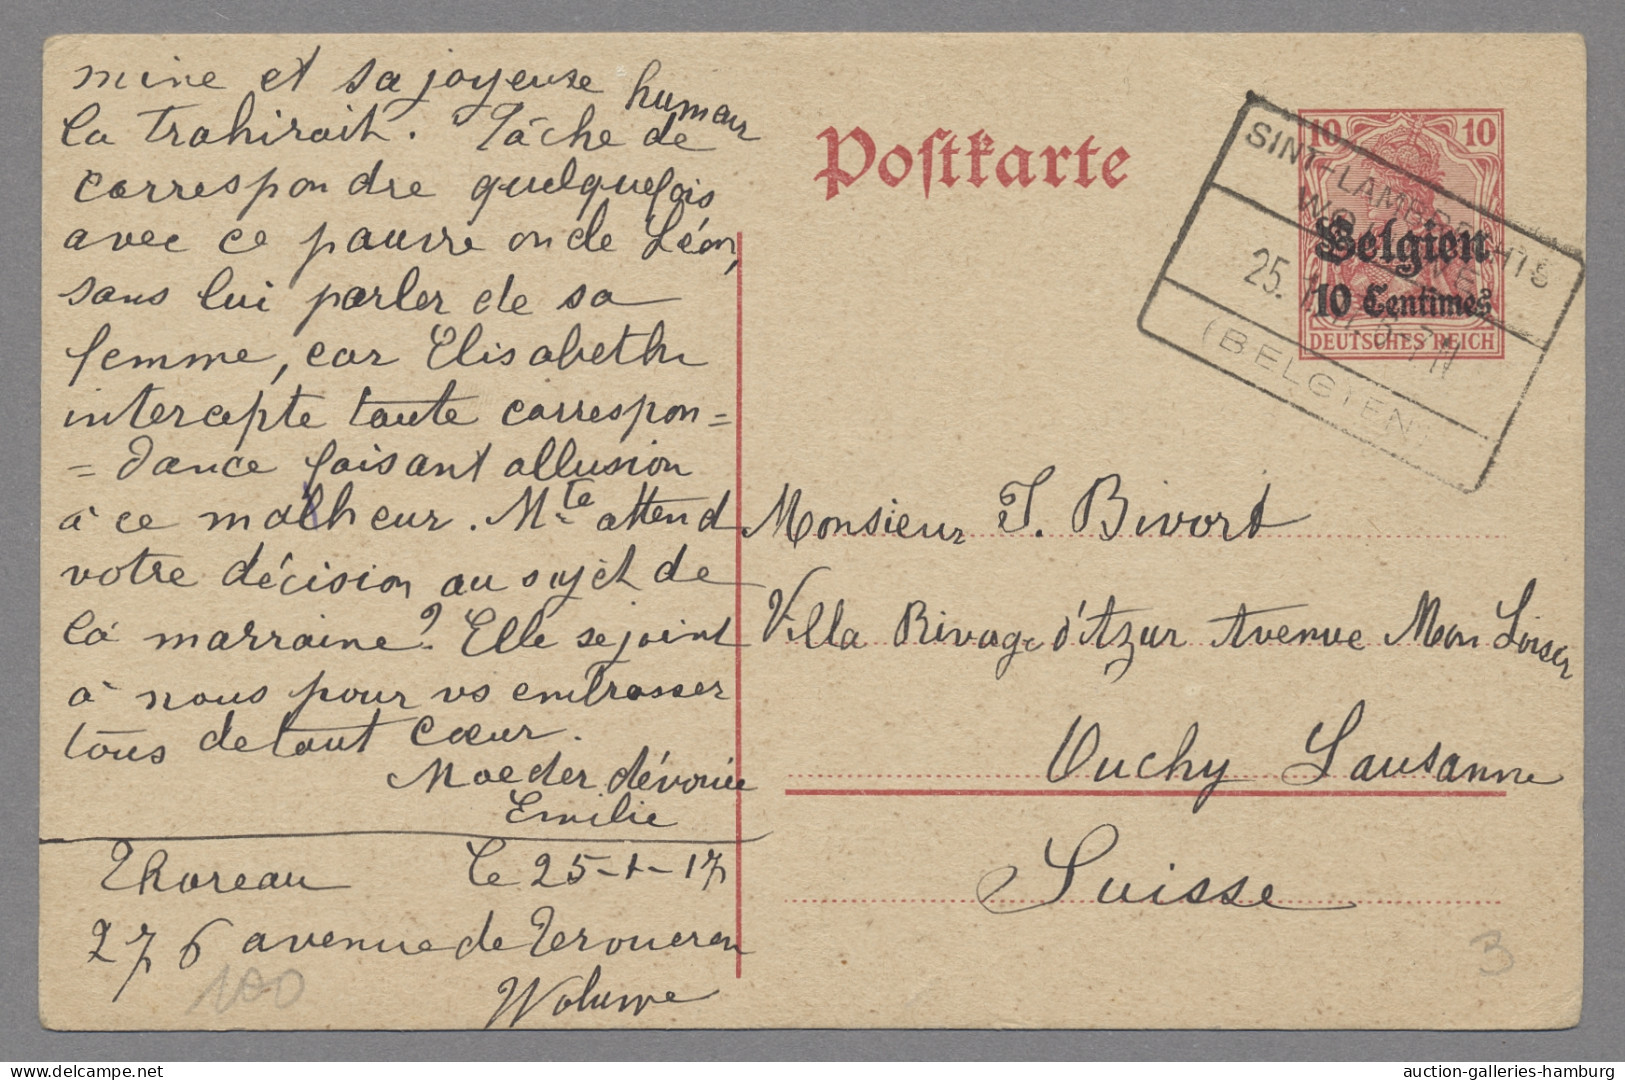 mine et sa joyeuse humeur
la trahirait. Tâche de
correspondre quelquefois
avec ce pauvre oncle Léon,
sans lui parler de sa
femme, car Elisabeth
intercepte toute correspon=
=dance faisant allusion
à ce malheur. Mte attend
votre décision au sujet de
la marraine? Elle se joint
à nous pour vs embrasser
tous de tout cœur.
Moeder dévouée
Emilie
Thoreau Le 25-1-17
276 avenue de Terveuren
Woluwe
100
Postkarte
10 10
Belgien
10 Centimes
DEUTSCHES REICH
SINT-LAMBRECHTS
WOLUWE
25.
(BELGIEN)
Monsieur J. Bivort
Villa Rivage d'Azur Avenue Mon Loisir
Ouchy Lausanne
Suisse
3
auction-galleries-hamburg